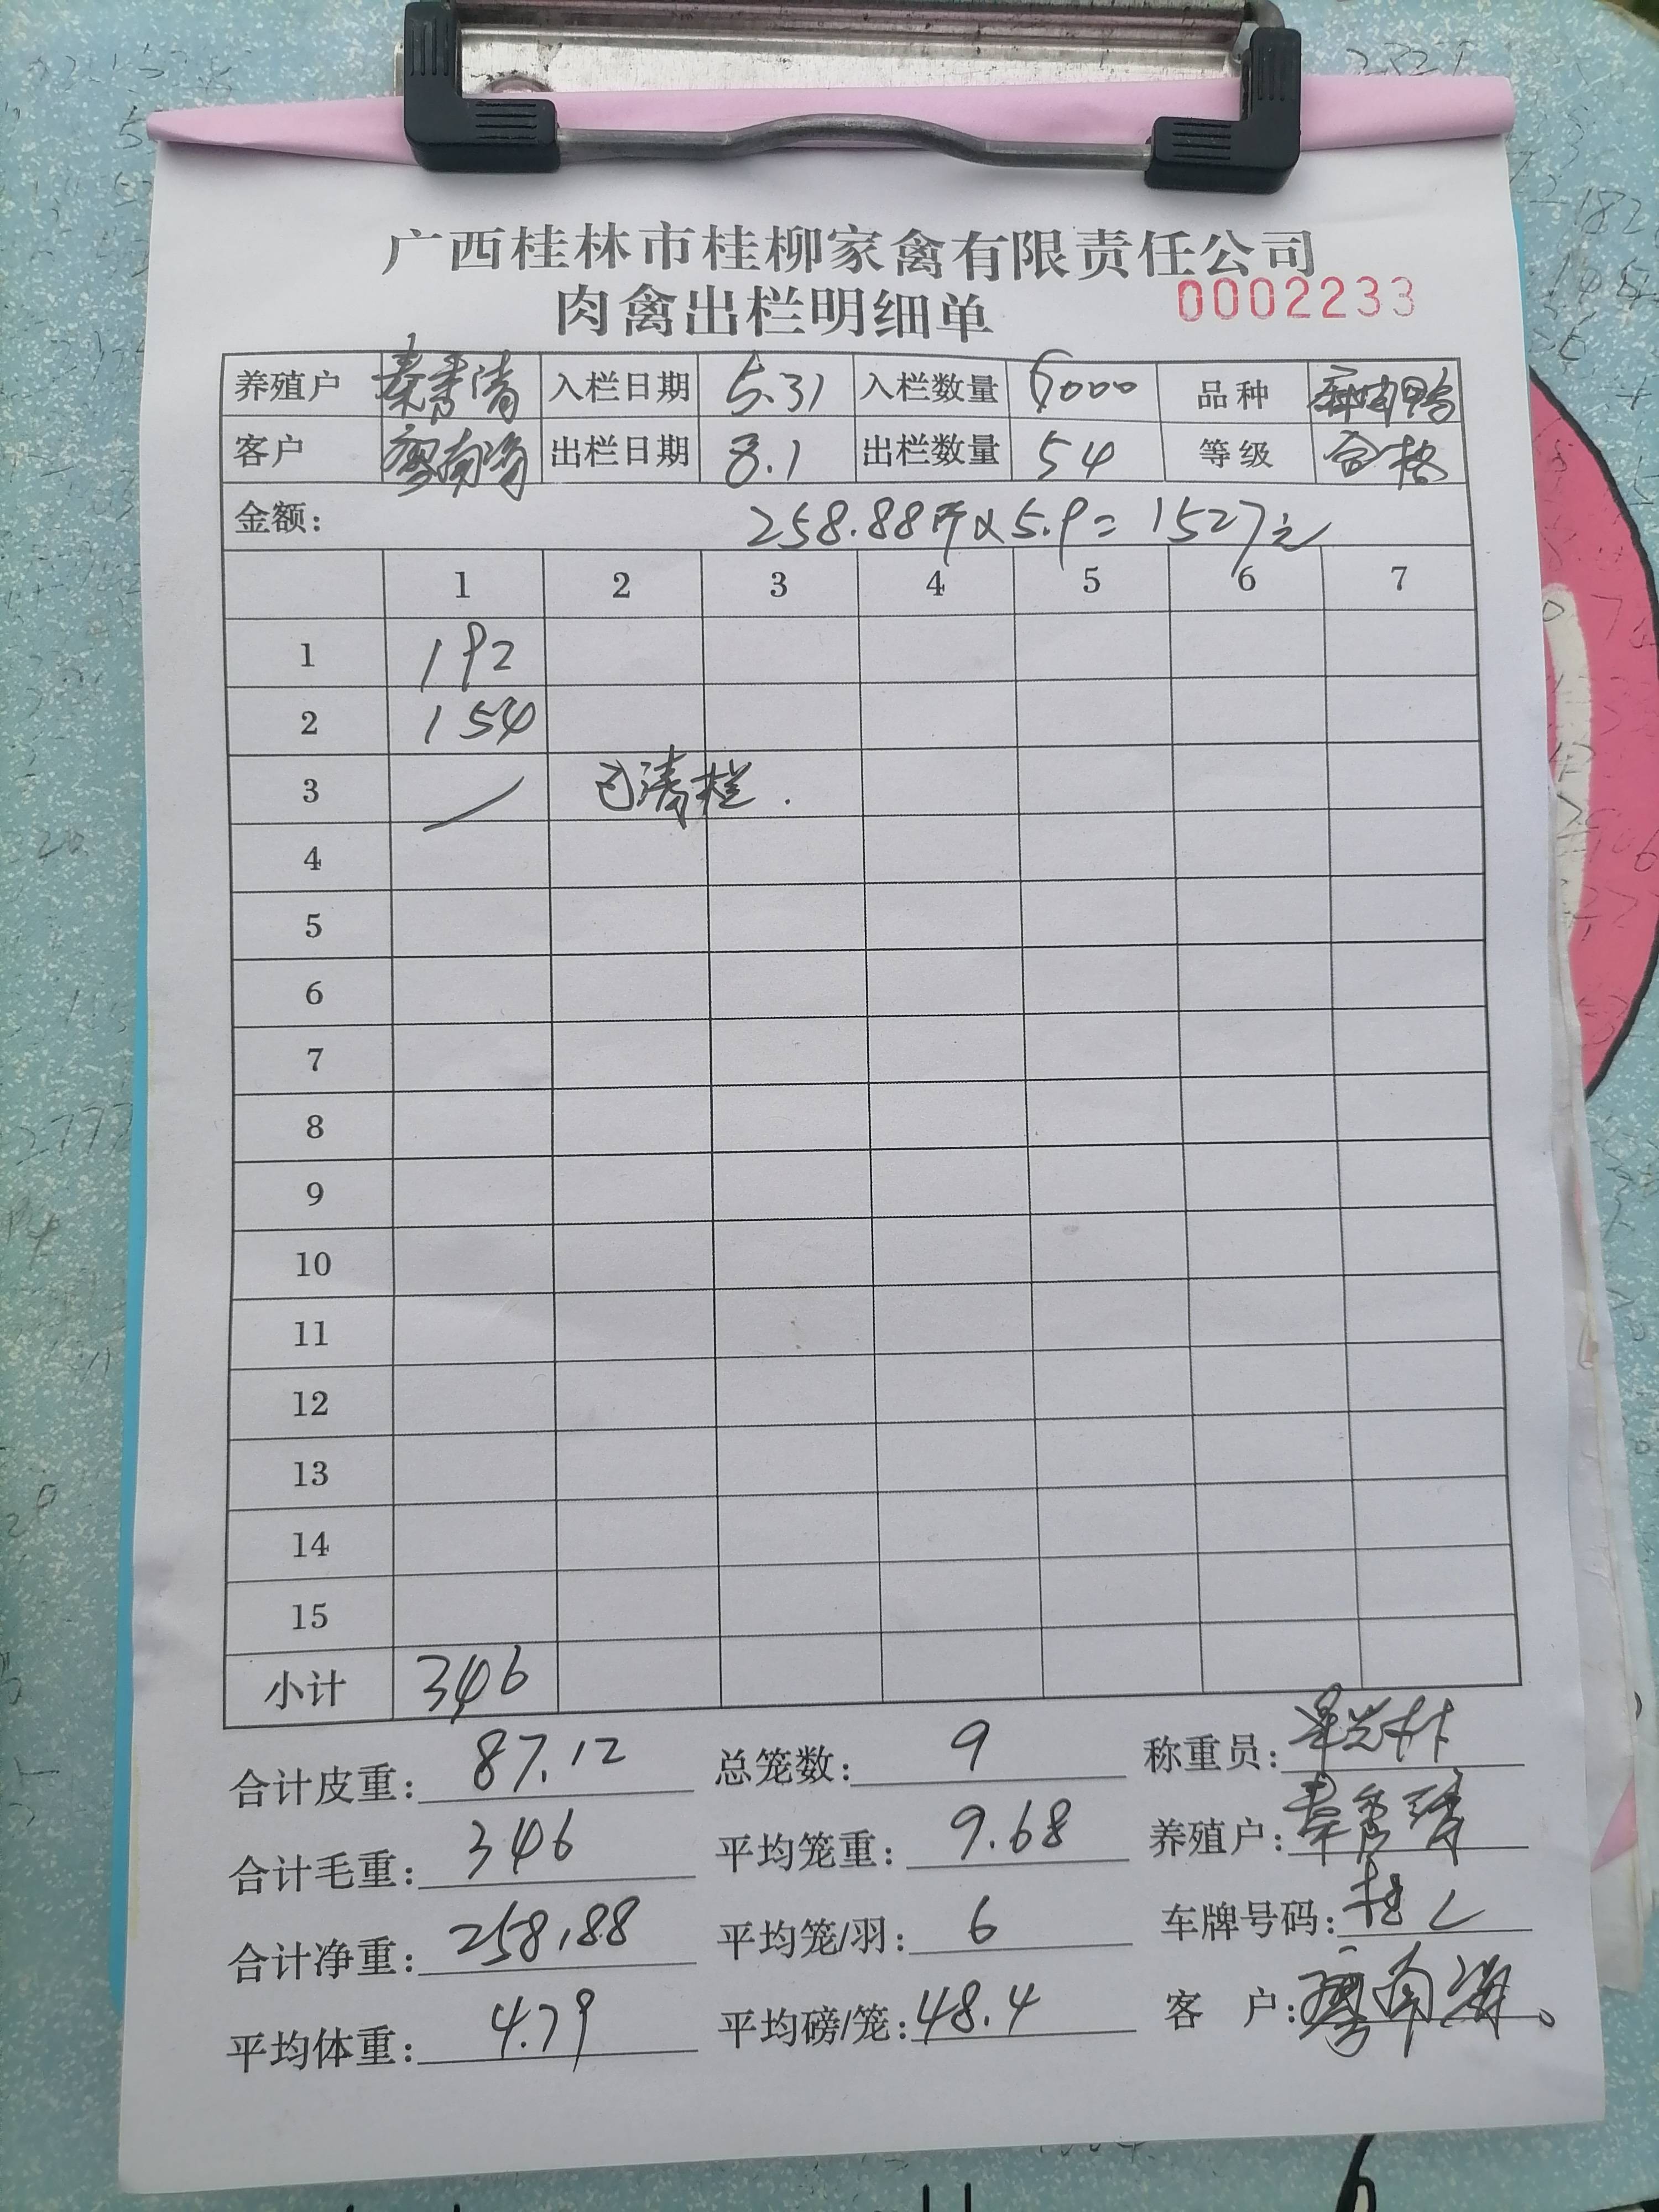 广西桂林市桂柳家禽有限责任公司
肉禽出栏明细单 0002233
养殖户 秦秀清 入栏日期 5.31 入栏数量 6000 品种 麻肉鸭
客户 廖南海 出栏日期 8.1 出栏数量 54 等级 合格
金额: 258.88斤×5.9=1527元
1 2 3 4 5 6 7
1 192
2 154
3 已清栏.
4
5
6
7
8
9
10
11
12
13
14
15
小计 346
合计皮重: 87.12 总笼数: 9 称重员:
合计毛重: 346 平均笼重: 9.68 养殖户: 秦秀清
合计净重: 258.88 平均笼/羽: 6 车牌号码: 桂
平均体重: 4.79 平均磅/笼: 48.4 客 户: 廖南海